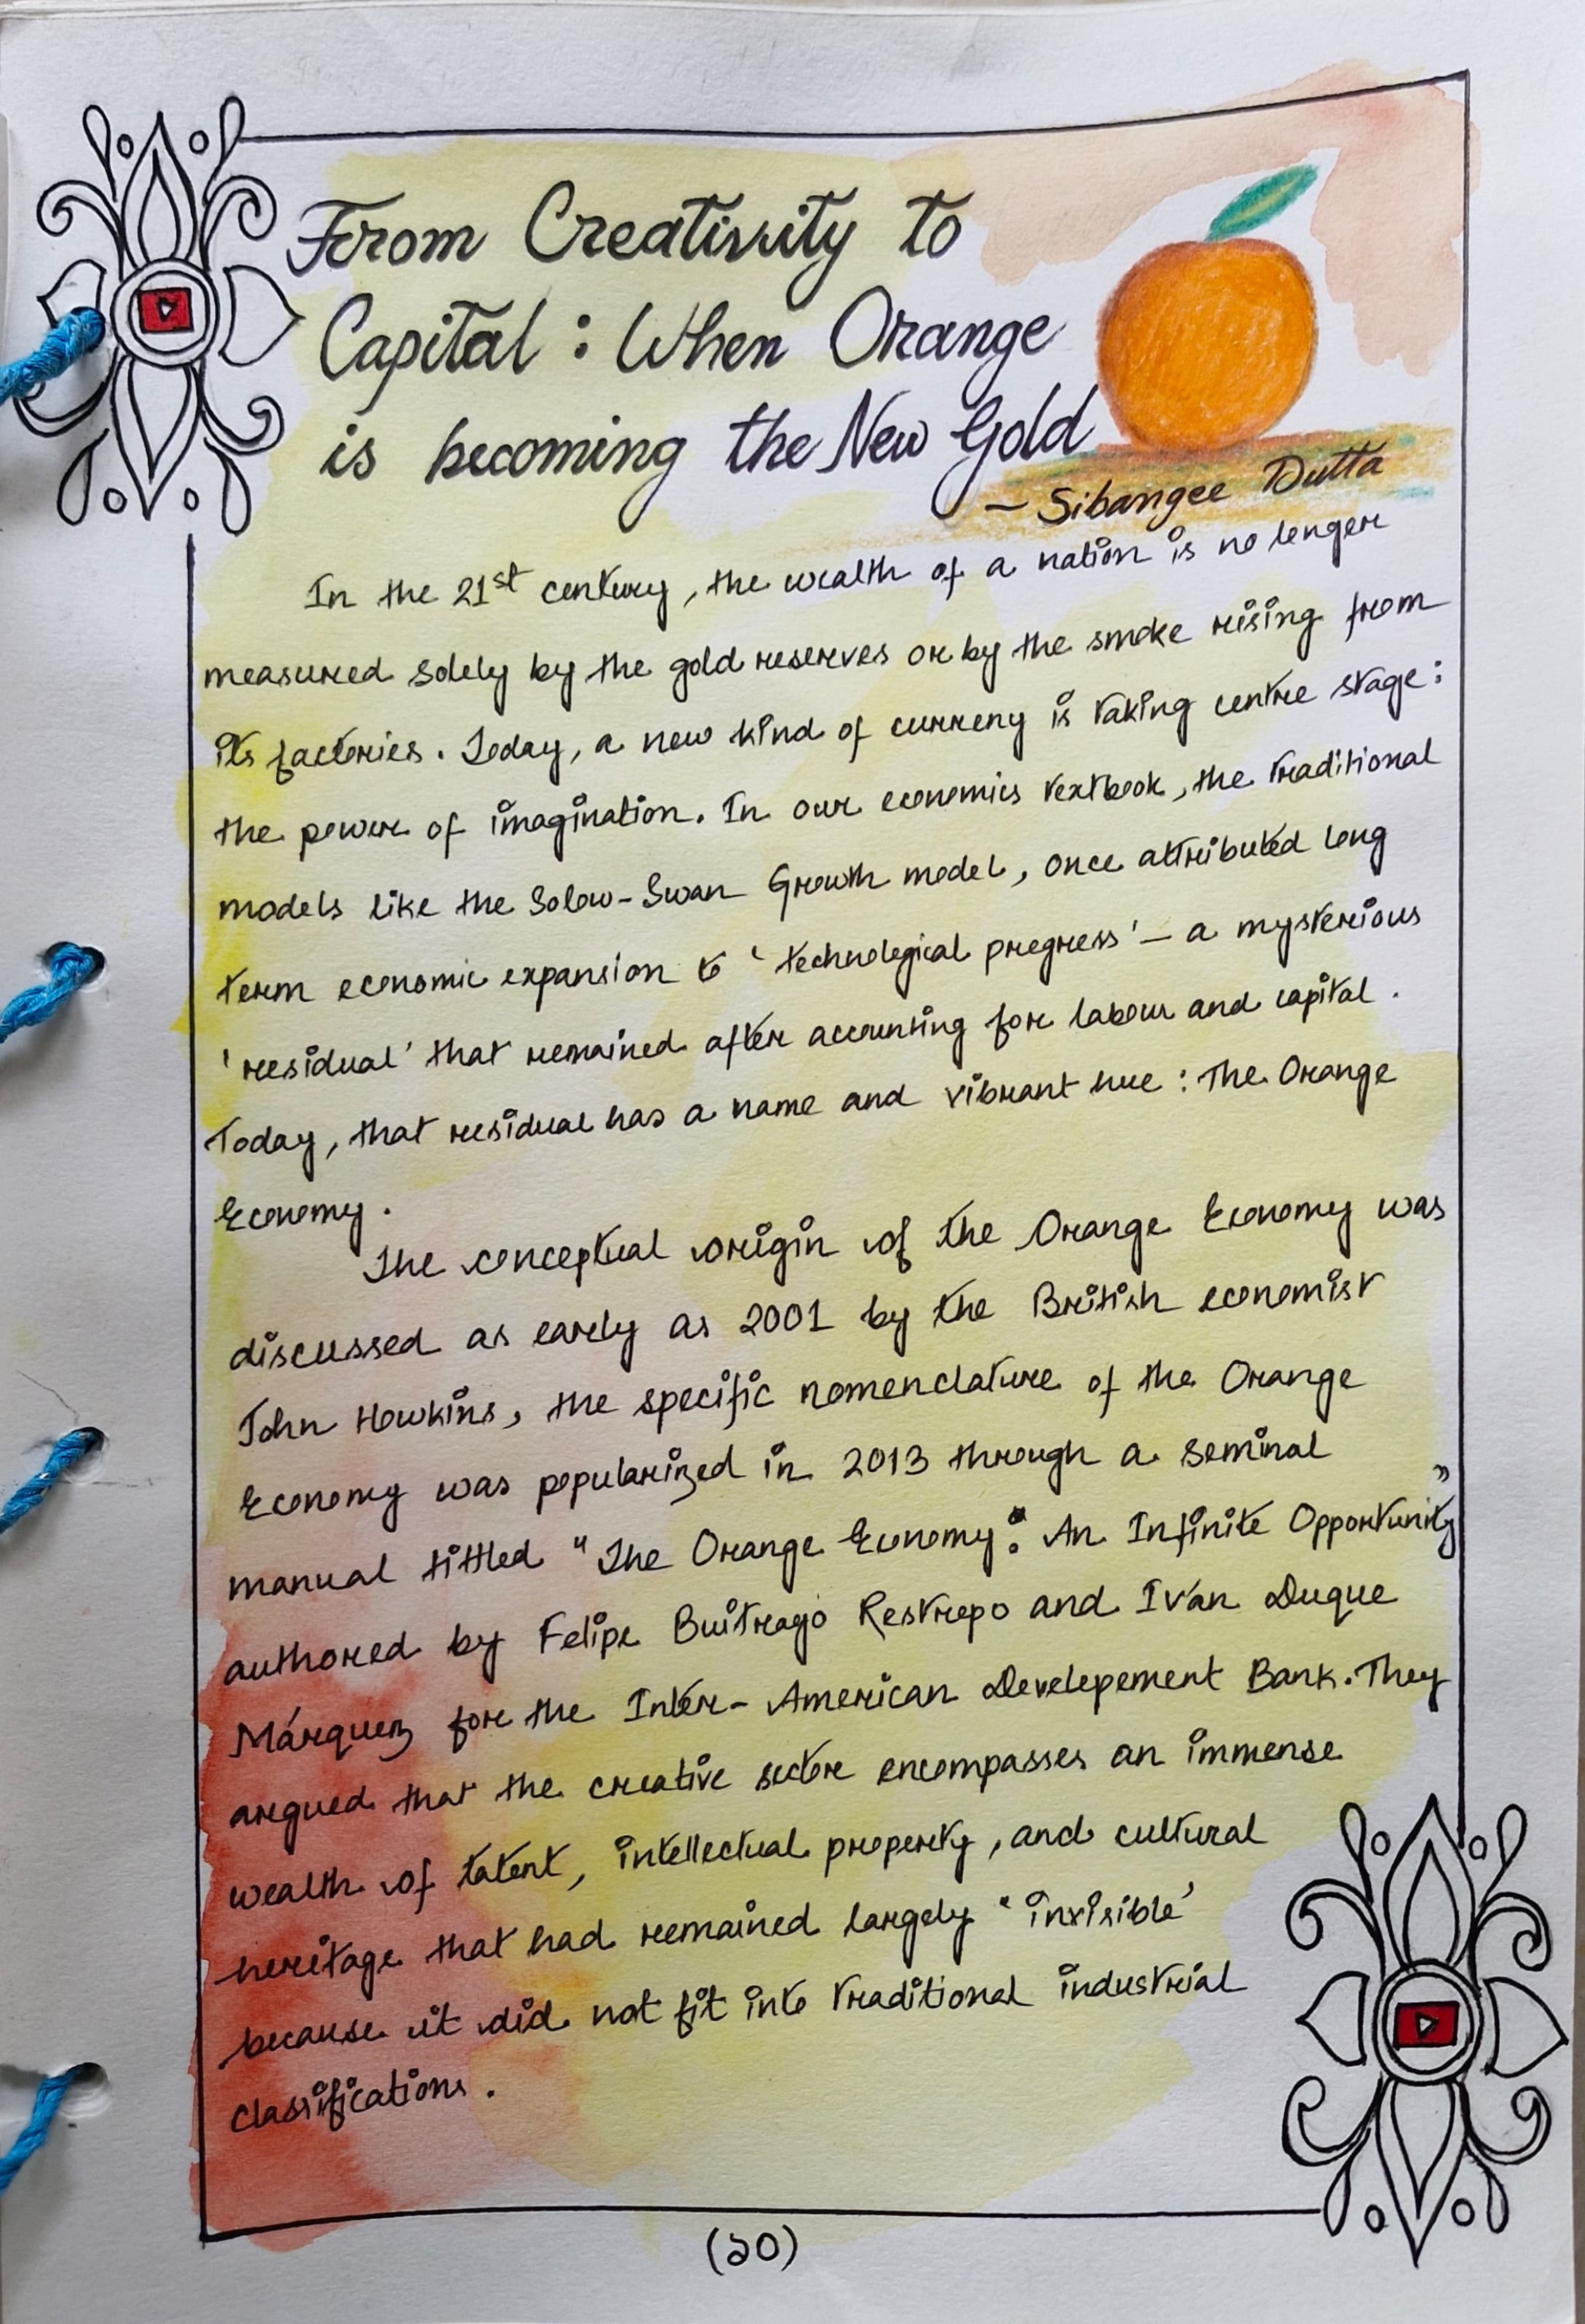 From Creativity to
Capital : When Orange
is becoming the New Gold
— Sibangee Dutta
In the 21st century, the wealth of a nation is no longer
measured solely by the gold reserves or by the smoke rising from
its factories. Today, a new kind of curreny is taking centre stage:
the power of imagination. In our economics textbook, the traditional
models like the Solow-Swan Growth model, once attributed long
term economic expansion to 'technological progress' – a mysterious
'residual' that remained after accounting for labour and capital.
Today, that residual has a name and vibrant hue : The Orange
Economy.
The conceptual origin of the Orange Economy was
discussed as early as 2001 by the British economist
John Howkins, the specific nomenclature of the Orange
Economy was popularized in 2013 through a seminal
manual tittled "The Orange Economy: An Infinite Opportunity"
authored by Felipe Buitrago Restrepo and Iván Duque
Márquez for the Inter-American Developement Bank. They
argued that the creative sector encompasses an immense
wealth of talent, intellectual property, and cultural
heritage that had remained largely 'invisible'
because it did not fit into traditional industrial
classifications.
(১০)